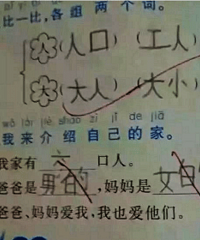 比一比,各组两个词。
人(人口)(工人)
大(大人)(大小)
wǒ lái jiè shào zì jǐ de jiā
我来介绍自己的家。
我家有 六 口人。
爸爸是男的,妈妈是女的
爸爸、妈妈爱我,我也爱他们。